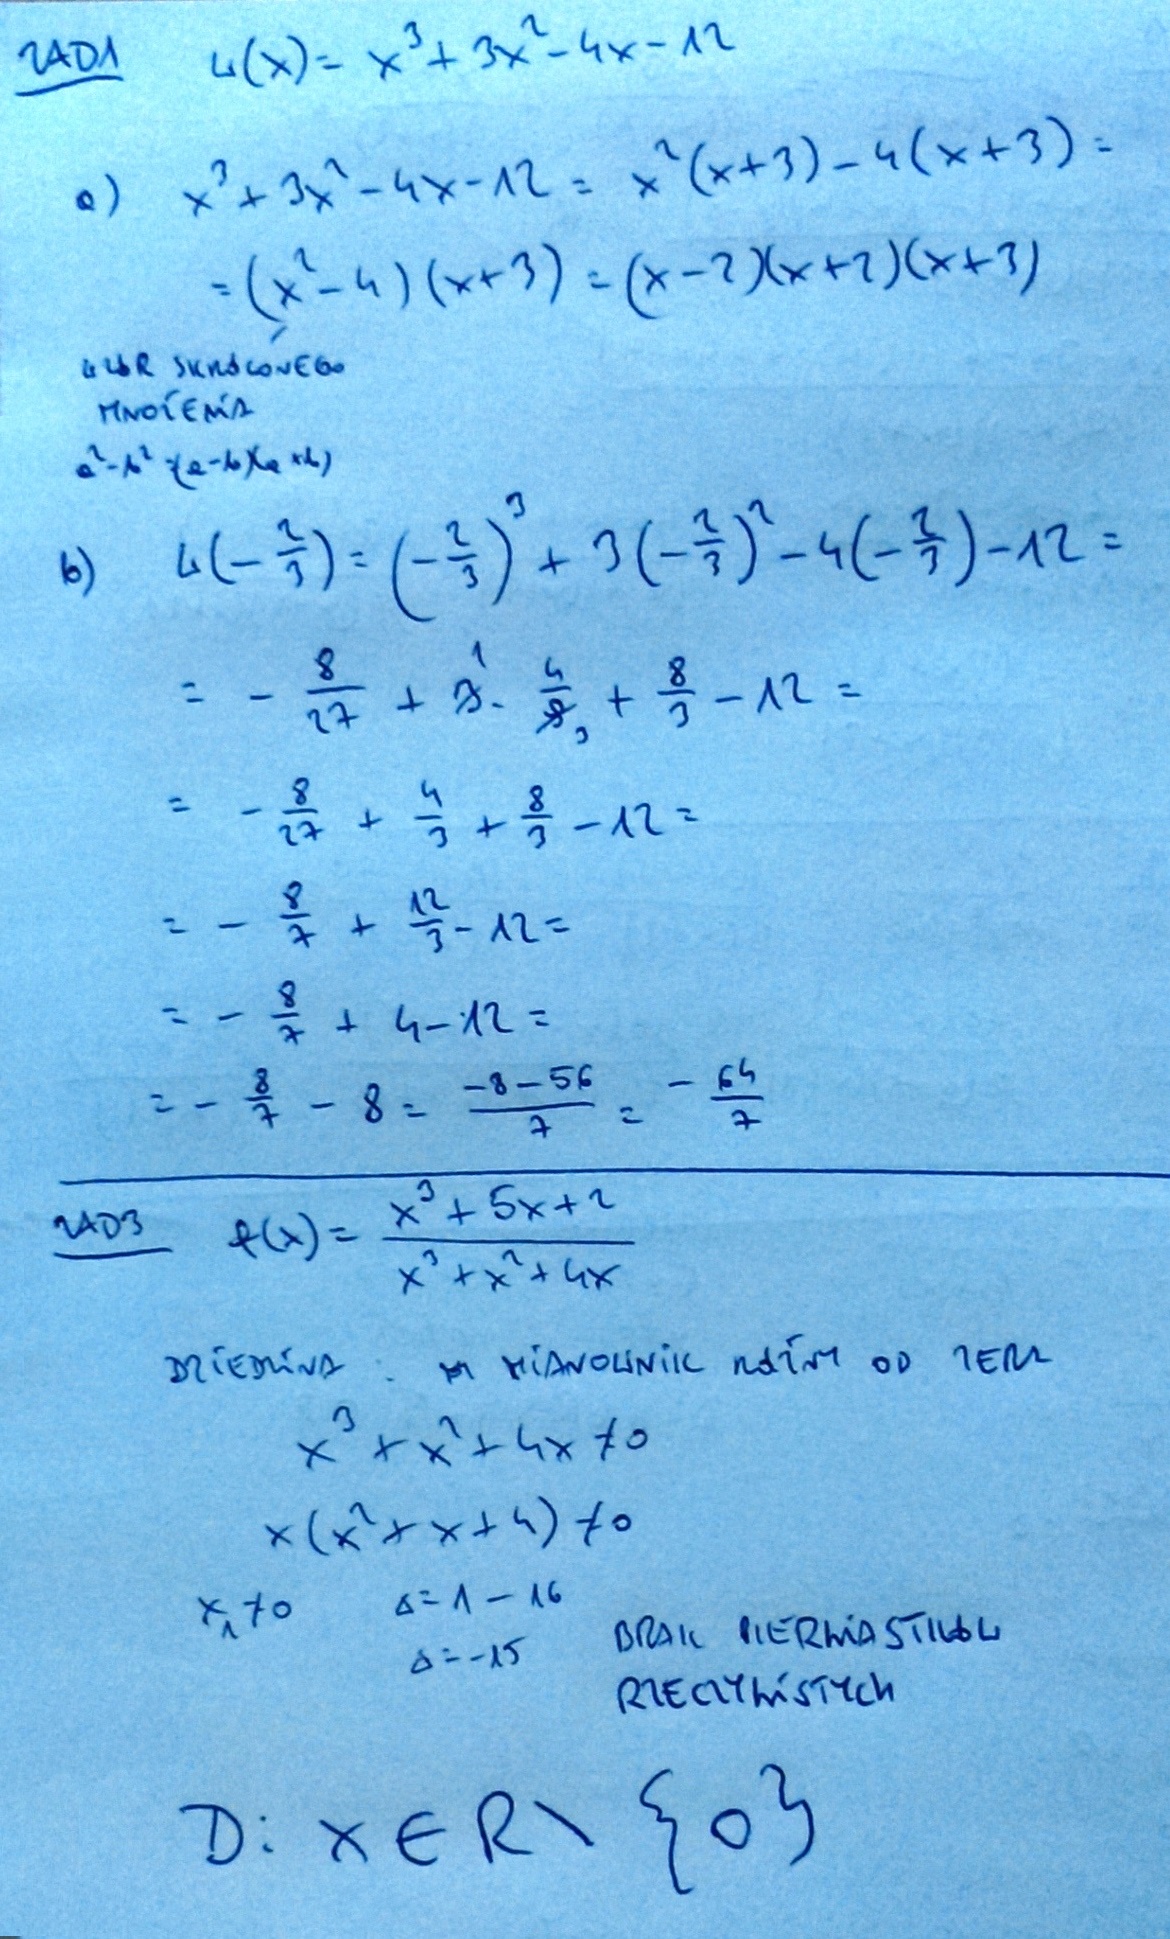 ZAD1 W(x) = x³ + 3x² - 4x - 12
a) x³ + 3x² - 4x - 12 = x²(x+3) - 4(x+3) =
= (x² - 4)(x+3) = (x-2)(x+2)(x+3)
WZÓR SKRÓCONEGO
MNOŻENIA
a² - b² = (a-b)(a+b)
b) W(-2/3) = (-2/3)³ + 3(-2/3)² - 4(-2/3) - 12 =
= - 8/27 + 3̸¹ · 4/9̸₃ + 8/3 - 12 =
= - 8/27 + 4/3 + 8/3 - 12 =
= - 8/7 + 12/3 - 12 =
= - 8/7 + 4 - 12 =
= - 8/7 - 8 = (-8-56)/7 = - 64/7
ZAD3 f(x) = (x³ + 5x + 2)/(x³ + x² + 4x)
DZIEDZINA : MIANOWNIK RÓŻNY OD ZERA
x³ + x² + 4x ≠ 0
x(x² + x + 4) ≠ 0
x₁ ≠ 0 Δ = 1 - 16
Δ = -15
BRAK PIERWIASTKÓW
RZECZYWISTYCH
D: x ∈ R \ {0}